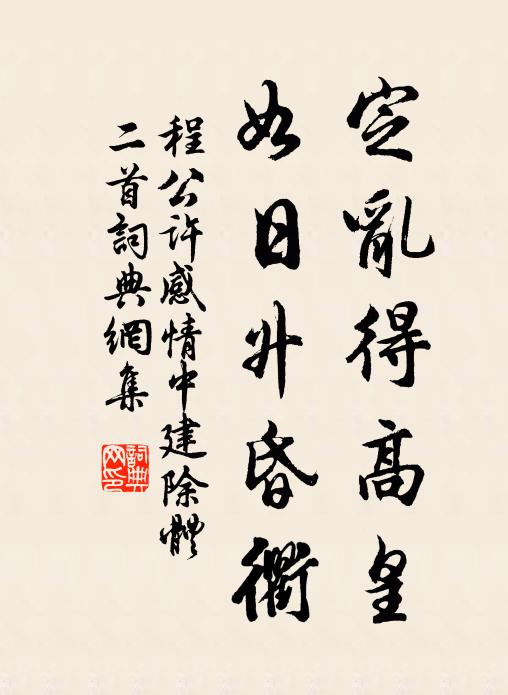 定亂得高皇
如日升昏衢
程公許感情中建除體
二首詞典網集
詞典網印